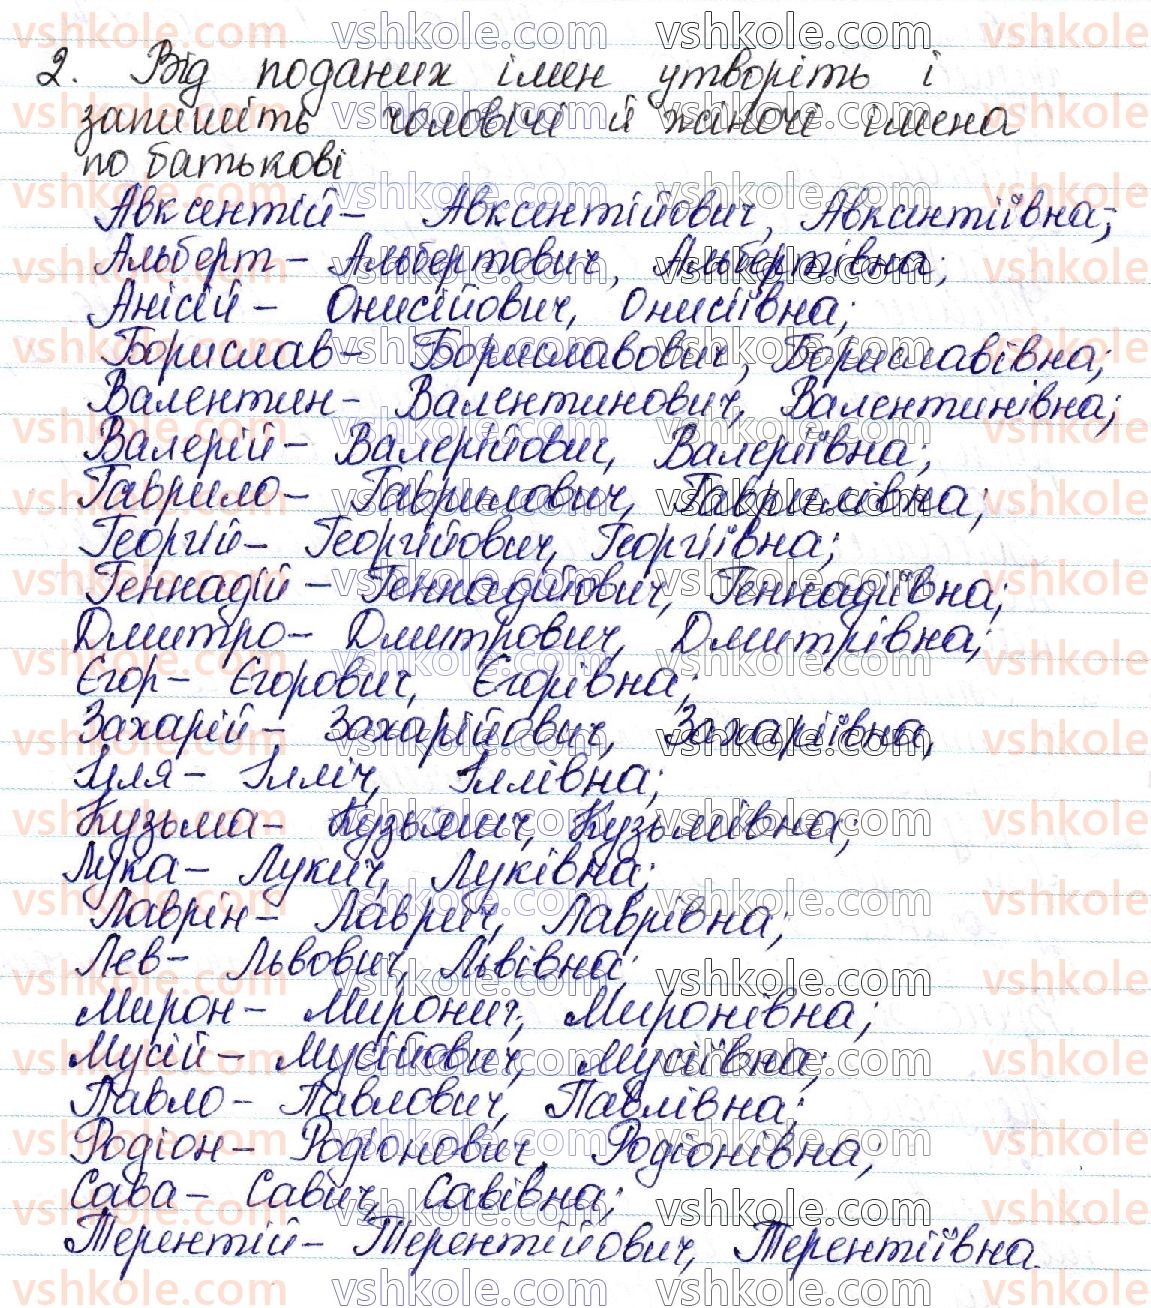 2. Від поданих імен утворіть і
запишіть чоловічі й жіночі імена
по батькові
Авксентій – Авксентійович, Авксентіївна;
Альберт – Альбертович, Альбертівна;
Анісій – Онисійович, Онисіївна;
Борислав – Бориславович, Бориславівна;
Валентин – Валентинович, Валентинівна;
Валерій – Валерійович, Валеріївна;
Гаврило – Гаврилович, Гаврилівна;
Георгій – Георгійович, Георгіївна;
Геннадій – Геннадійович, Геннадіївна;
Дмитро – Дмитрович, Дмитрівна;
Єгор – Єгорович, Єгорівна;
Захарій – Захарійович, Захаріївна,
Ілля – Ілліч, Іллівна;
Кузьма – Кузьмич, Кузьмівна;
Лука – Лукич, Луківна;
Лаврін – Лаврич, Лаврівна;
Лев – Львович, Львівна;
Мирон – Миронич, Миронівна;
Мусій – Мусійович, Мусіївна;
Павло – Павлович, Павлівна;
Родіон – Родіонович, Родіонівна;
Сава – Савич, Савівна;
Терентій – Терентійович, Терентіївна.